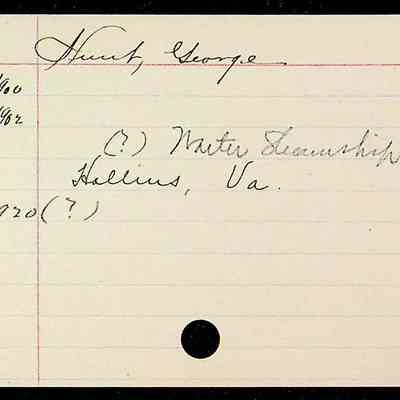 Hunt, George
1900
1902
(?) Walter Steamship
Hollins, Va.
1920 (?)